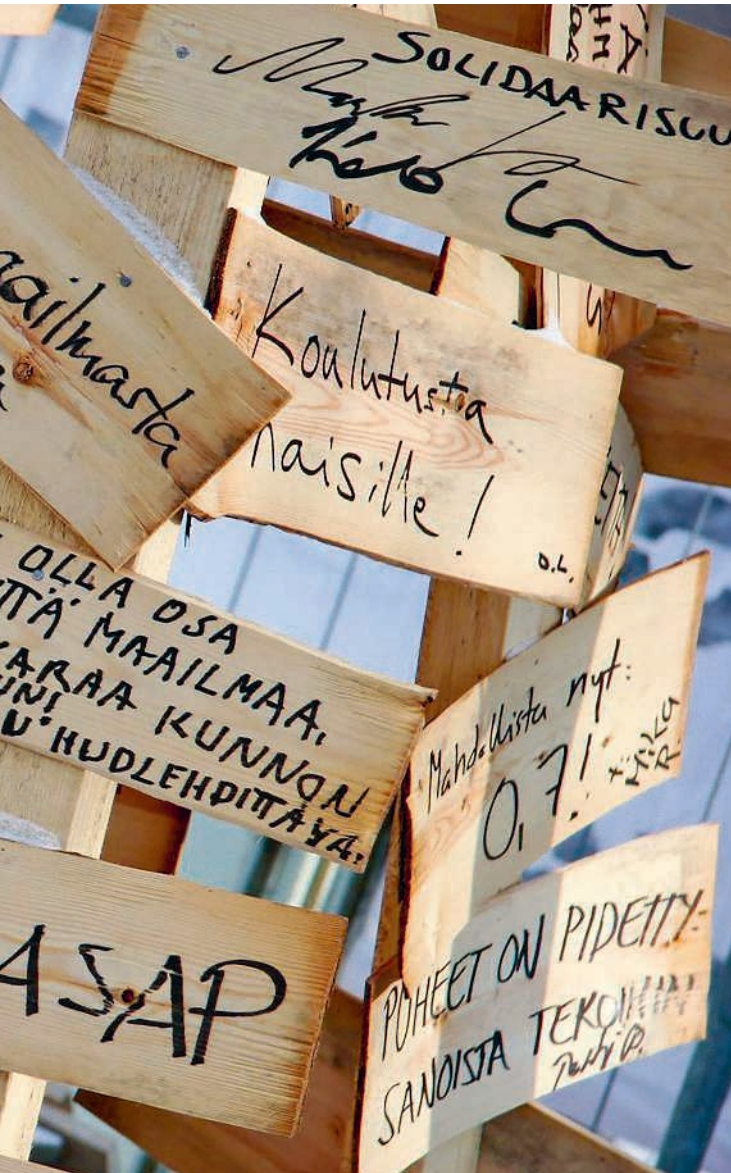 SOLIDAARISUU
Koulutusta
naisille!
O.L.
aailmasta
OLLA OSA
ITÄ MAAILMAA.
KARAA KUNNON
UN!
U HUOLEHDITTAVA.
Mahdollista nyt:
0,7!
MIKA
R
ASAP
PUHEET ON PIDETTY-
SANOISTA TEKOIHIN